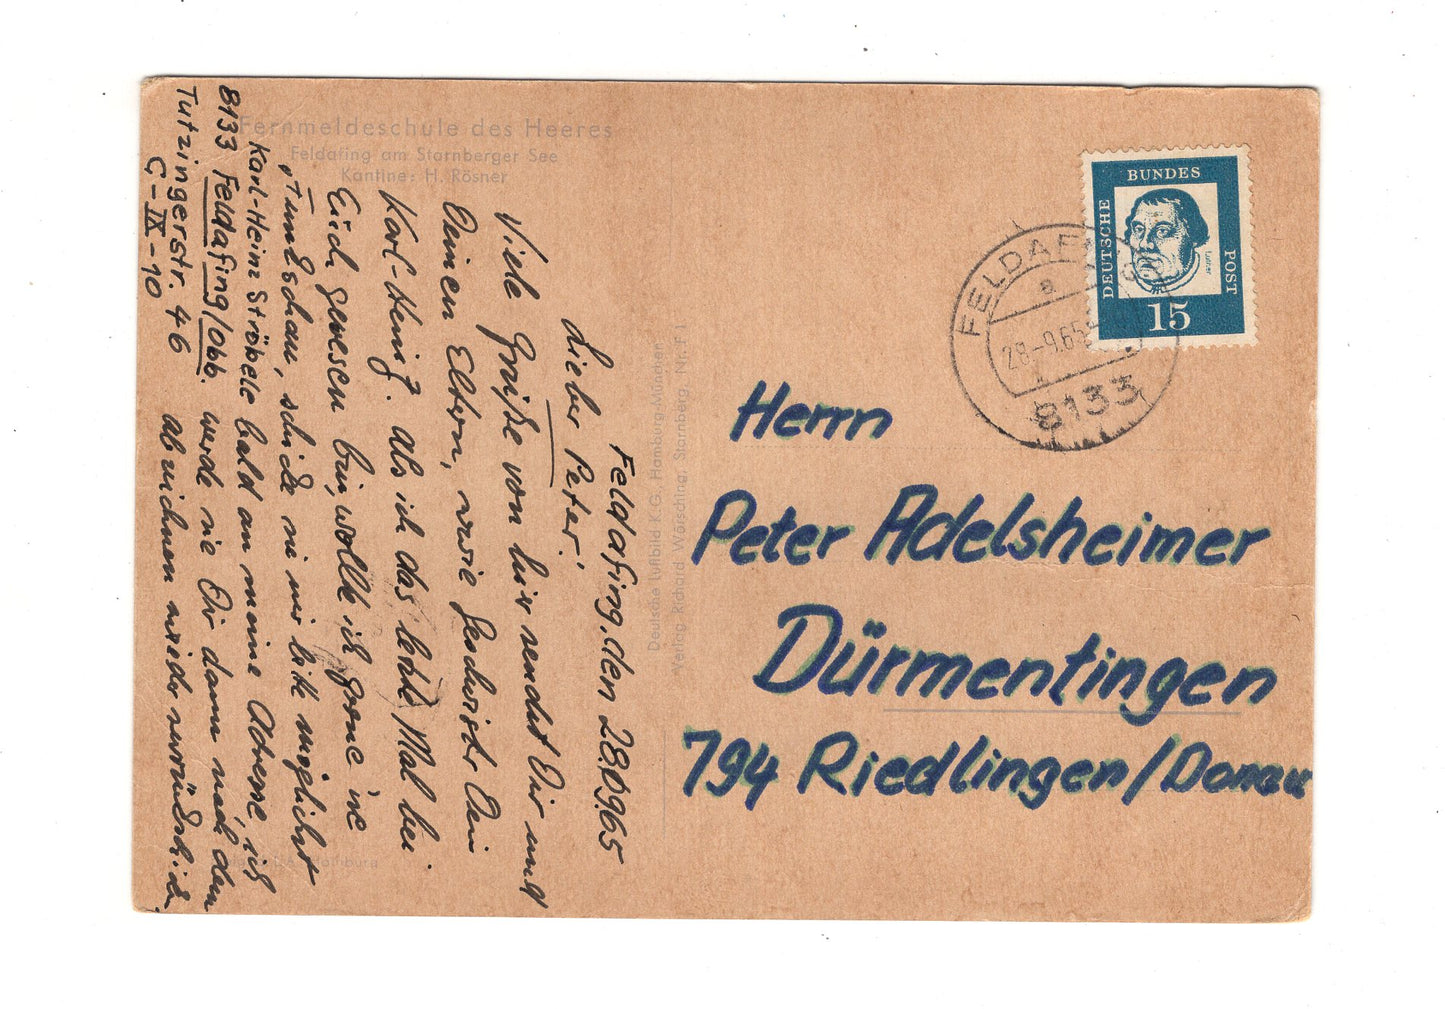 Fernmeldeschule des Heeres
Feldafing am Starnberger See
Kantine: H. Rösner
Feldafing, den 28.09.65
Lieber Peter!
Viele Grüße von hier sendet Dir und
Deinen Eltern, wie Geschwister Dein
Karl-Heinz. Als ich das letzte Mal bei
Euch gewesen bin, wollte ich gerne ins
schicke sie mir bitte möglichst
bald an meine Adresse, ich
werde sie Dir dann nach dem
wieder zurückschicken
Karl-Heinz Ströbele
8133 Feldafing/Obb.
Tutzingerstr. 46
C-IX-10
Deutsche Luftbild K.G. Hamburg-München
Verlag Richard Wörsching, Starnberg, Nr. F 1
DEUTSCHE
BUNDES
POST
Luther
15
FELDAFING
a
28.-9.65
8133
Herrn
Peter Adelsheimer
Dürmentingen
794 Riedlingen/Donau